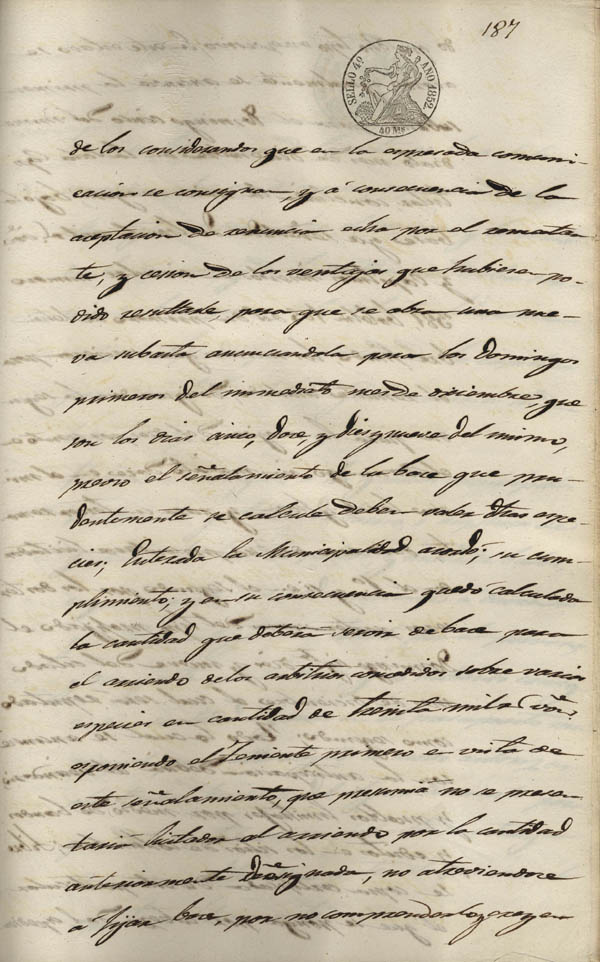 187
SELLO 4º AÑO 1852.
40 Ms
de los considerandos que en la espresada comuni-
cacion se consignan, y á consecuencia de la
aceptacion de renuncia echa por el rematan-
te, y cesion de las ventajas que hubiera po-
dido resultarle, para que se abra una nue-
va subasta anunciandola para los Domingos
primeros del immediato mes de diciembre que
son los dias cinco, doce, y diez y nueve del mismo,
previo el señalamiento de la bace que pru-
dentemente se calcule deben valer dhas espe-
cies; Enterada la Municipalidad acordó; su cum-
plimiento; y en su consecuencia quedó calculada
la cantidad que deberá servir de bace para
el arriendo de los arbitrios concedidos sobre varias
especies en cantidad de treinta mil rs von,
esponiendo el Teniente primero en vista de
este señalamiento, que presumia no se presen-
taria licitador al arriendo por la cantidad
anteriormente designada, no atreviendose
á fijar bace, por no comprender los